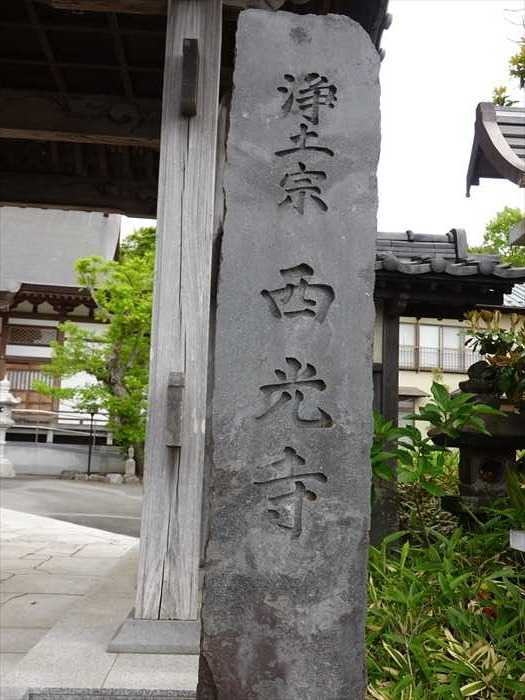 浄土宗 西光寺